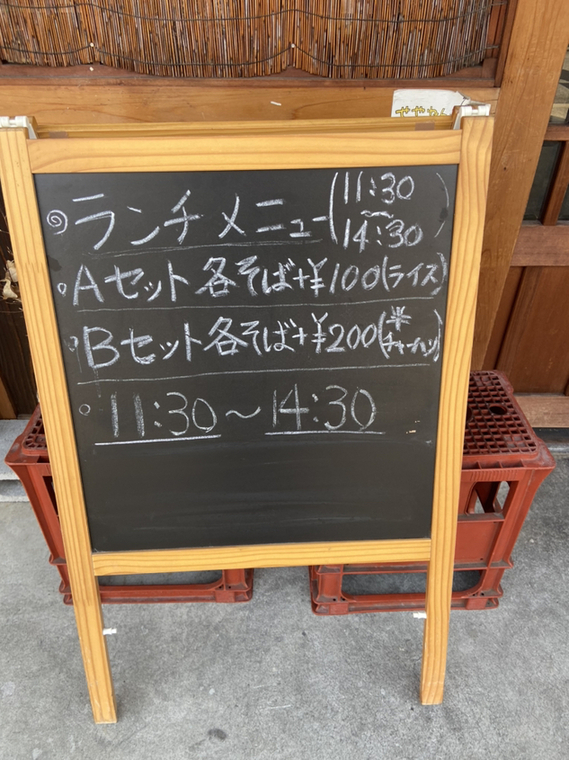 ランチメニュー(11:30〜14:30)
Aセット各そば+¥100(ライス)
Bセット各そば+¥200(半チャーハン)
11:30〜14:30